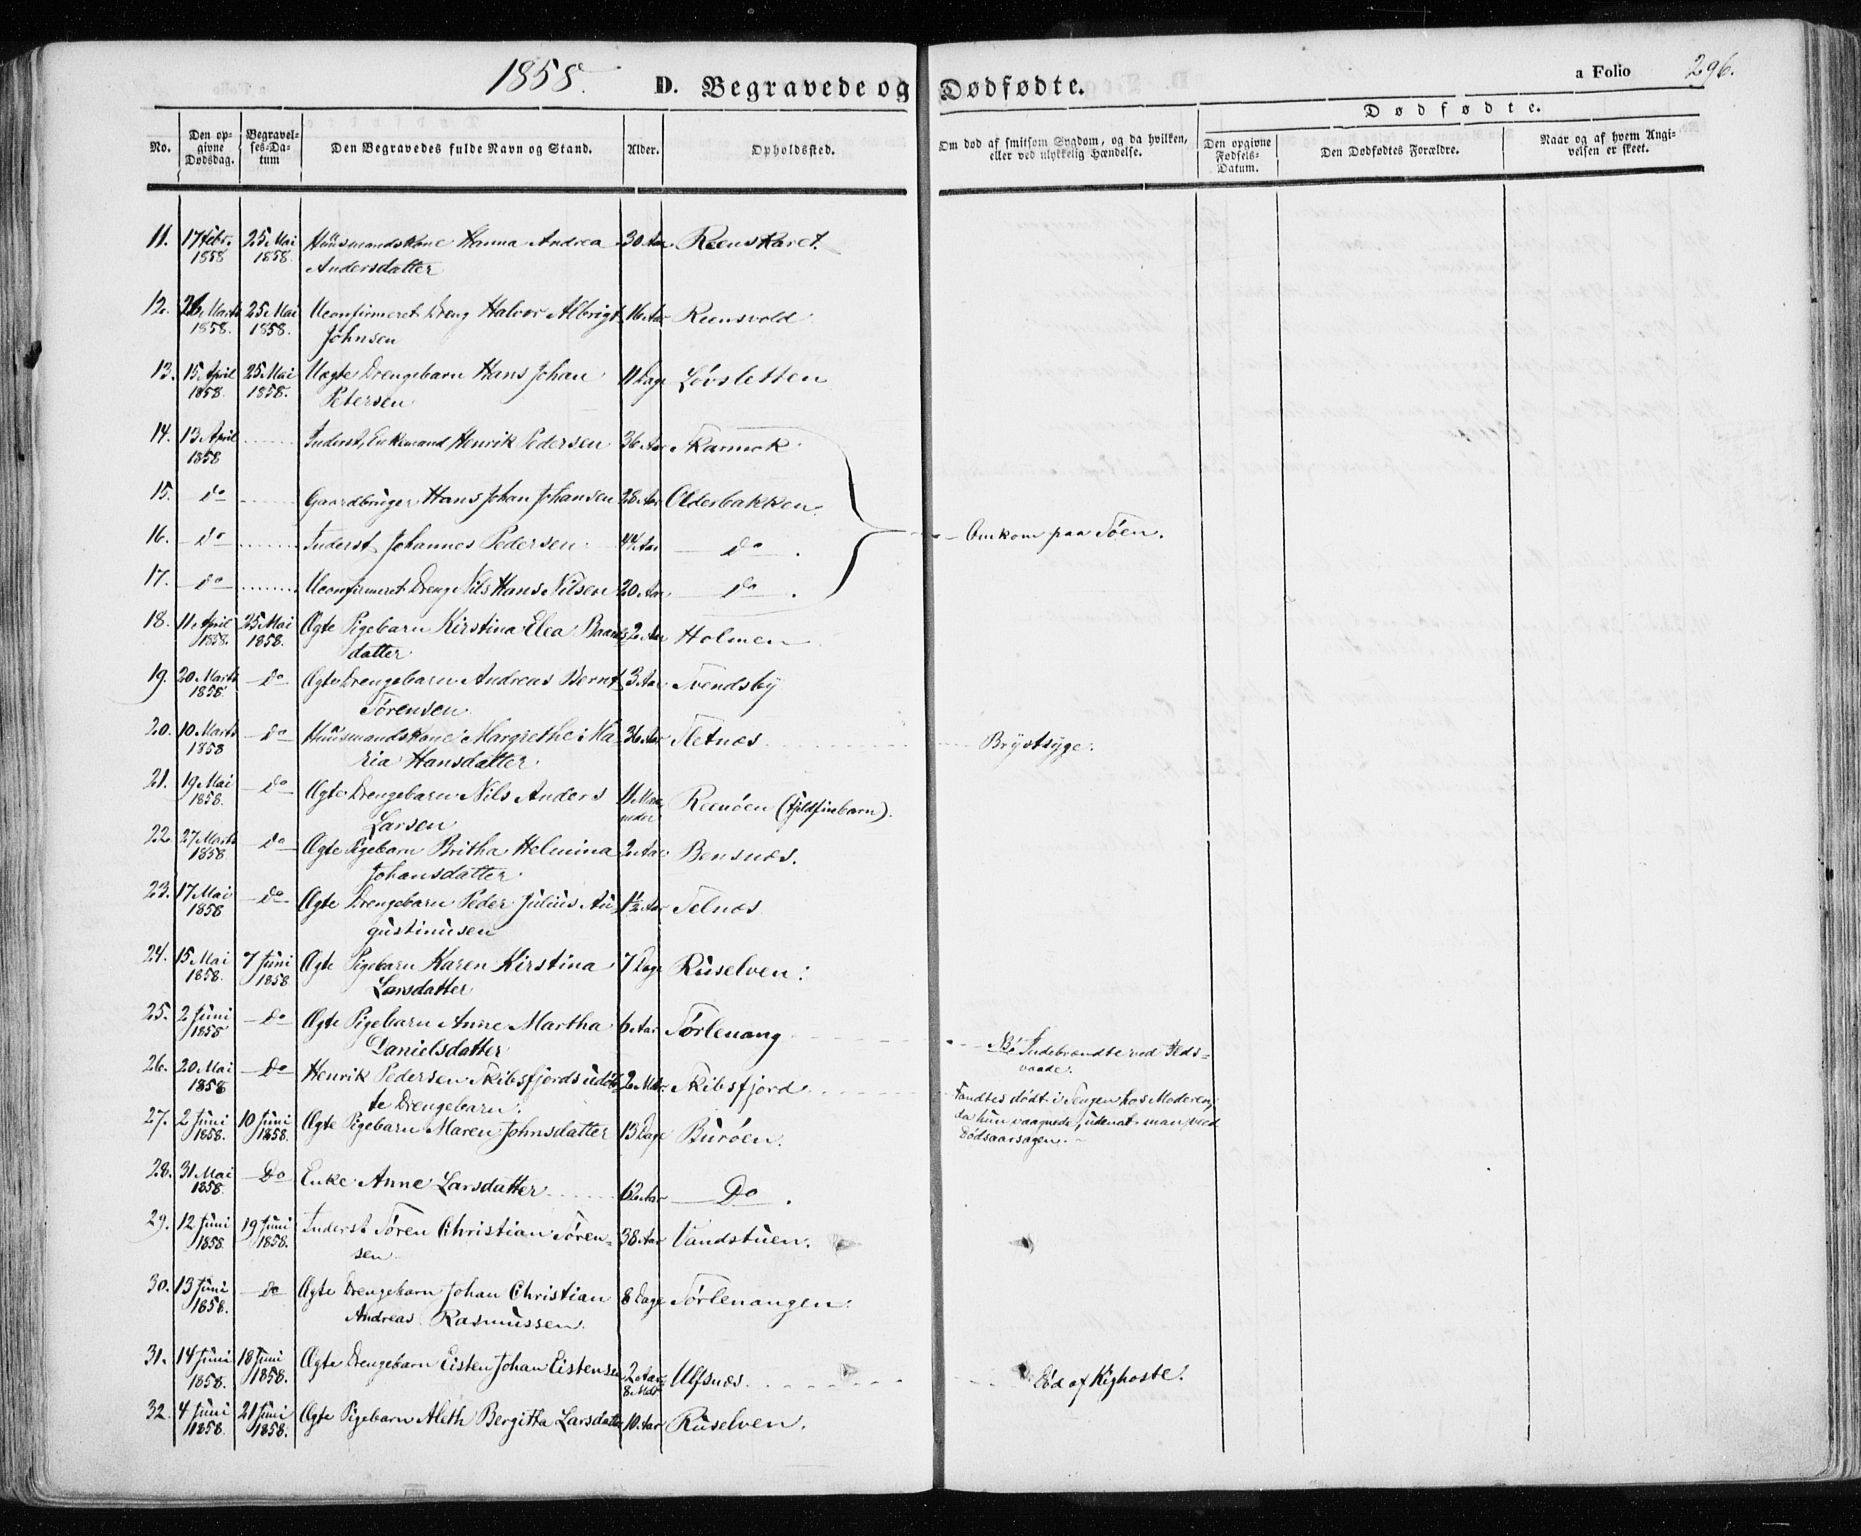 1858. D. Begravede og Dødfødte. a Folio 296.
Dødfødte.
No. Den opgivne Dødsdag. Begravelses-Datum Den Begravedes fulde Navn og Stand. Alder. Opholdssted. Om død af smitsom Sygdom, og da hvilken, eller ved ulykkelig Hændelse. Den opgivne Fødsels-Datum. Den Dødfødtes Forældre. Naar og af hvem Angivelsen er skeet.
11. 17 Febr. 1858 25 Mai 1858. Huusmandskone Hanna Andrea 30 Aar Reenskaret.
Andersdatter
12. 26 Marts 1858. 25 Mai 1858. Uconfirmeret Dreng Halvor Albrigt 16 Aar Reensvold
Johnsen
13. 15 April 1858. 25 Mai 1858. Uægte Drengebarn Hans Johan 11 Dage Løvsletten
Petersen
14. 13 April 1858 Inderst, Enkemand Henrik Pedersen 36 Aar Skarmok
15. do Gaardbruger Hans Johan Johansen 28 Aar Olderbakken.
16. do Inderst Johannes Pedersen 44 Aar do. Omkom paa Søen.
17. do Uconfirmeret Dreng Nils Hans Nilsen 20 Aar do.
18. 11 April 1858. 25 Mai 1858. Ægte Pigebarn Kirstina Elea Baards 2 Aar Holmen
datter
19. 20 Marts 1858 do Ægte Drengebarn Andreas Bernt 3 Aar Svendsby
Sørensen
20. 10 Marts 1858 do Huusmandskone Margrethe Ma- 36 Aar Sletnæs Brystsyge.
ria Hansdatter
21. 19 Mai 1858. do Ægte Drengebarn Nils Anders 11 Maaneder Reenøen (fjeldfinbarn).
Larsen
22. 27 Marts 1858 do Ægte Pigebarn Britha Helmina 2 Aar Bensnæs.
Johansdatter
23. 17 Mai 1858 do Ægte Drengebarn Peder Julius Au- 1½ Aar Selnæs
gustinusen
24. 15 Mai 1858. 7 Juni 1858 Ægte Pigebarn Karen Kirstina 7 Dage Ruselven:
Larsdatter
25. 2 Juni 1858 do Ægte Pigebarn Anne Martha 6 Aar Sørlenang
Danielsdatter NB. Indebrændte ved Ilds-
vaade.
26. 20 Mai 1858 do Henrik Pedersen Skibsfjords udøb- 2 Mdr. Skibsfjord
te Drengebarn. Fandtes dødt i Sengen hos Moderen,
da hun vaagnede, uden at man veed
Dødsaarsagen.
27. 2 Juni 1858. 10 Juni 1858. Ægte Pigebarn Maren Johnsdatter 13 Dage Burøen.
28. 31 Mai 1858. Do Enke Anne Larsdatter 62 Aar Do.
29. 12 Juni 1858. 19 Juni 1858. Inderst Søren Christian Søren- 38 Aar Vandstuen.
sen
30. 13 Juni 1858. do Ægte Drengebarn Johan Christian 8 Dage Sørlenangen.
Andreas Rasmussen.
31. 14 Juni 1858. 18 Juni 1858. Ægte Drengebarn Eisten Johan Eistensen 2 Aar 8 Mdr Ulfsnæs. Død af Kighoste.
32. 4 Juni 1858. 21 Juni 1858. Ægte Pigebarn Aleth Bergitha Larsdatter 10 Aar Ruselven.